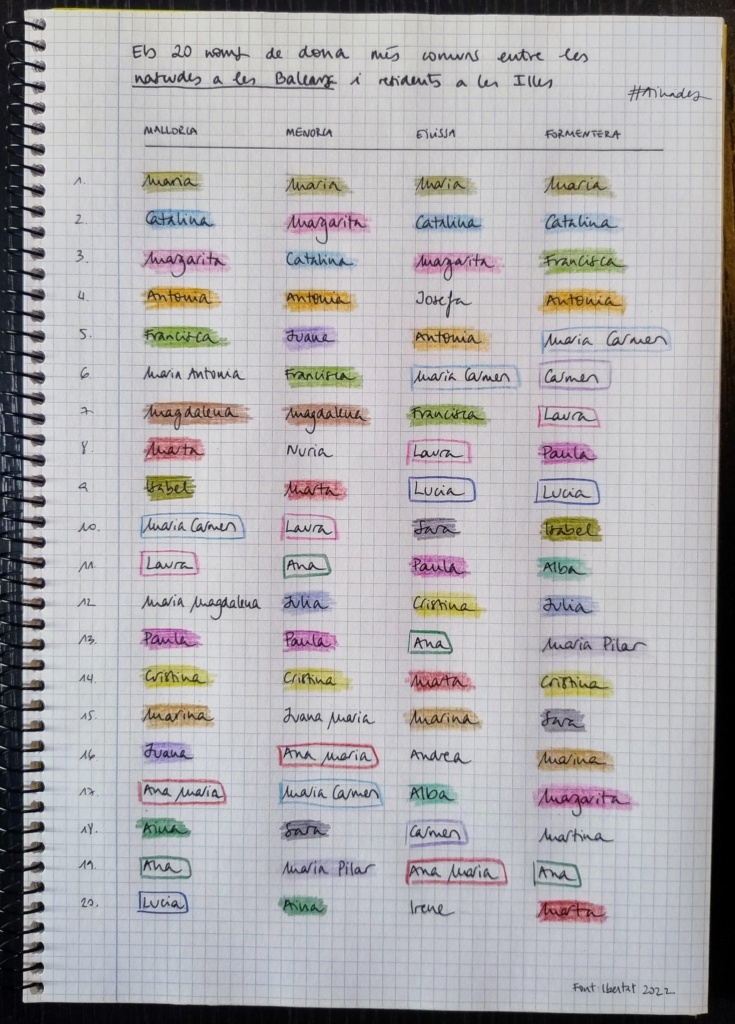 Els 20 noms de dona més comuns entre les
nascudes a les Balears i residents a les Illes
#Ainades
MALLORCA MENORCA EIVISSA FORMENTERA
1. Maria Maria Maria Maria
2. Catalina Margarita Catalina Catalina
3. Margarita Catalina Margarita Francisca
4. Antonia Antonia Josefa Antonia
5. Francisca Juana Antonia Maria Carmen
6 Maria Antonia Francisca Maria Carmen Carmen
7 Magdalena Magdalena Francisca Laura
8 Marta Nuria Laura Paula
9 Isabel Marta Lucia Lucia
10. Maria Carmen Laura Sara Isabel
11. Laura Ana Paula Alba
12 Maria Magdalena Julia Cristina Julia
13. Paula Paula Ana Maria Pilar
14. Cristina Cristina Marta Cristina
15. Marina Juana Maria Marina Sara
16 Juana Ana Maria Andrea Marina
17. Ana Maria Maria Carmen Alba Margarita
18. Aina Sara Carmen Martina
19. Ana Maria Pilar Ana Maria Ana
20. Lucia Aina Irene Marta
Font Ibestat 2022